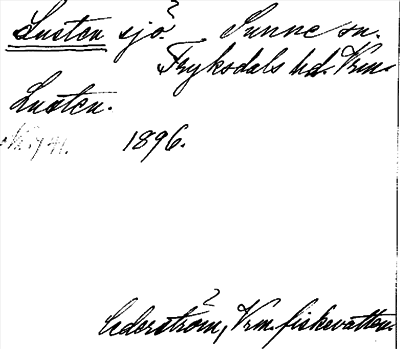 Lusten sjö. Sunne sn.
Fryksdals hd. Vrm.
Lusten.
1896.
Cederström, Vrm. fiskevatten.